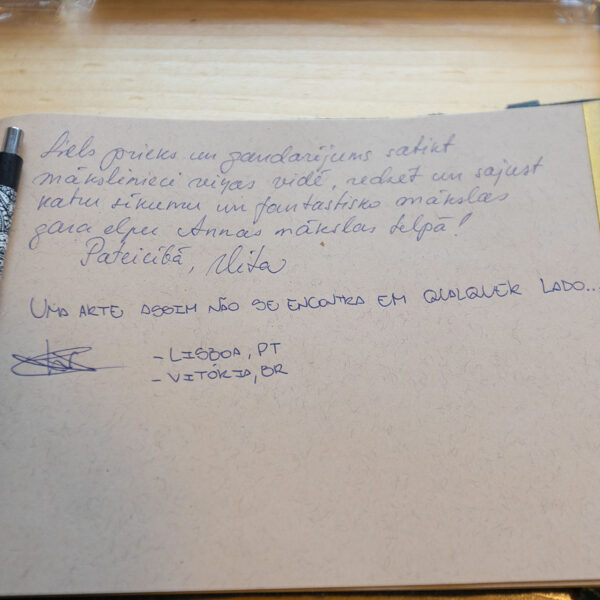 Liels prieks un gandarījums satikt
mākslinieci viņas vidē, redzēt un sajust
katru sīkumu un fantastisko mākslas
gara elpu Annas mākslas telpā!
Pateicībā, Vita
UMA ARTE ASSIM NÃO SE ENCONTRA EM QUALQUER LADO...
- LISBOA, PT
- VITÓRIA, BR